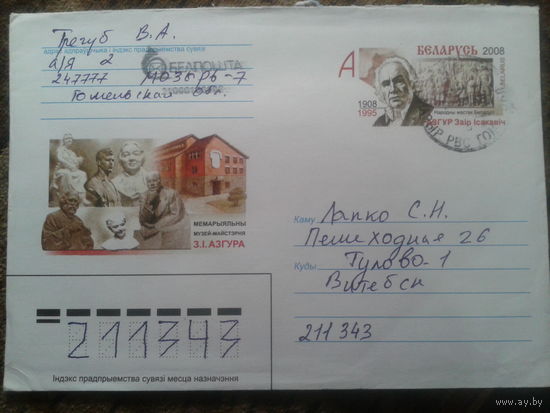 Трегуб В.А.
адрас адпраўшчыка і індэкс прадпрыемства сувязі
а/я 2
247777 Мозырь-7
Гомельская обл.
БЕЛПОШТА
А
БЕЛАРУСЬ 2008
1908
1995
Народны мастак Беларусі
АЗГУР Заір Ісакавіч
МЕМАРЫЯЛЬНЫ
МУЗЕЙ-МАЙСТЭРНЯ
З.І. АЗГУРА
Каму Лапко С.Н.
Пешеходная 26
Куды Тулово-1
Витебск
211343
211343
Індэкс прадпрыемства сувязі месца назначэння
www.ay.by